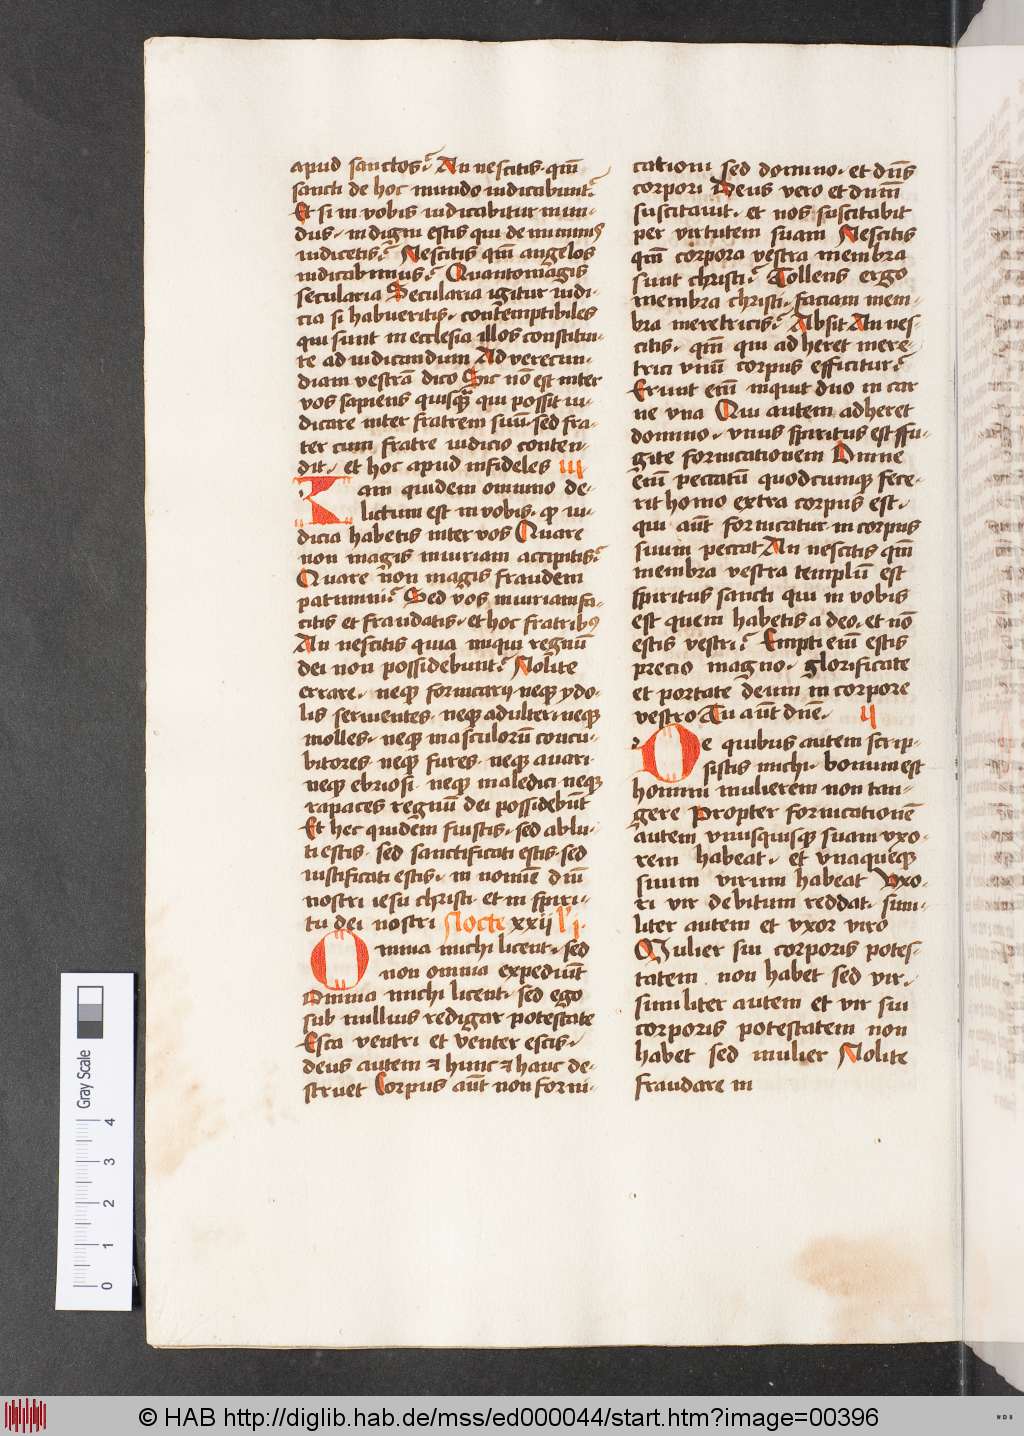 apud sanctos? An nescitis· qm̄
sancti de hoc mundo iudicabunt?
Et si in vobis iudicabitur mun-
dus· indigni estis qui de minimis
iudicetis? Nescitis qm̄ angelos
iudicabimus? Quantomagis
secularia Secularia igitur iudi-
cia si habueritis· contemptibiles
qui sunt in ecclesia illos constitui-
te ad iudicandum Ad verecun-
diam vestrā dico Sic nō est inter
vos sapiens quisqꝫ qui possit iu-
dicare inter fratrem suū· sed fra-
ter cum fratre iudicio conten-
dit· et hoc apud infideles iij
Iam quidem omnino de-
lictum est in vobis· qꝫ iu-
dicia habetis inter vos Quare
non magis iniuriam accipitis?
Quare non magis fraudem
patimini? Sed vos iniuriam fa-
citis et fraudatis· et hoc fratribꝫ
An nescitis quia iniqui regnū
dei non possidebunt? Nolite
errare· neqꝫ fornicarij· neqꝫ ydo-
lis seruientes· neqꝫ adulteri· neqꝫ
molles· neqꝫ masculorū concu-
bitores neqꝫ fures· neqꝫ auari
neqꝫ ebriosi· neqꝫ maledici neqꝫ
rapaces regnū dei possidebūt
Et hec quidem fuistis· sed ablu-
ti estis· sed sanctificati estis· sed
iustificati estis· in nomīe dn̄i
nostri iesu christi· et in spiri-
tu dei nostri Nocte xxij
Omnia michi licent· sed
non omnia expediūt
Omnia michi licent· sed ego
sub nullius redigar potestate
Esca ventri et venter escis·
deus autem ⁊ hunc ⁊ hanc de-
struet Corpus aūt non forni-
cationi sed domino· et dn̄s
corpori Deus vero et dn̄m
suscitauit· et nos suscitabit
per virtutem suam Nescitis
qm̄ corpora vestra membra
sunt christi? Tollens ergo
membra christi· faciam mem-
bra meretricis? Absit An nes-
citis· qm̄ qui adheret mere-
trici vnū corpus efficitur?
Erunt em̄ inquit duo in car
ne vna Qui autem adheret
domino· vnus spiritus est ffu-
gite fornicationem Omne
em̄ peccatū quodcumqꝫ fece-
rit homo extra corpus est·
qui aūt fornicatur in corpus
suum peccat An nescitis qm̄
membra vestra templū est
spiritus sancti qui in vobis
est quem habetis a deo· et nō
estis vestri? Empti em̄ estis
precio magno· glorificate
et portate deum in corpore
vestro Tu aūt dn̄e· ij
De quibus autem scrip-
sistis michi· bonum est
homini mulierem non tan-
gere Propter fornicationē
autem vnusquisqꝫ suam vxo-
rem habeat· et vnaqueqꝫ
suum virum habeat Vxo-
ri vir debitum reddat· simi-
liter autem et vxor viro
Mulier sui corporis potes-
tatem non habet sed vir·
similiter autem et vir sui
corporis potestatem non
habet sed mulier Nolite
fraudare in
Gray Scale
0 1 2 3 4
© HAB http://diglib.hab.de/mss/ed000044/start.htm?image=00396